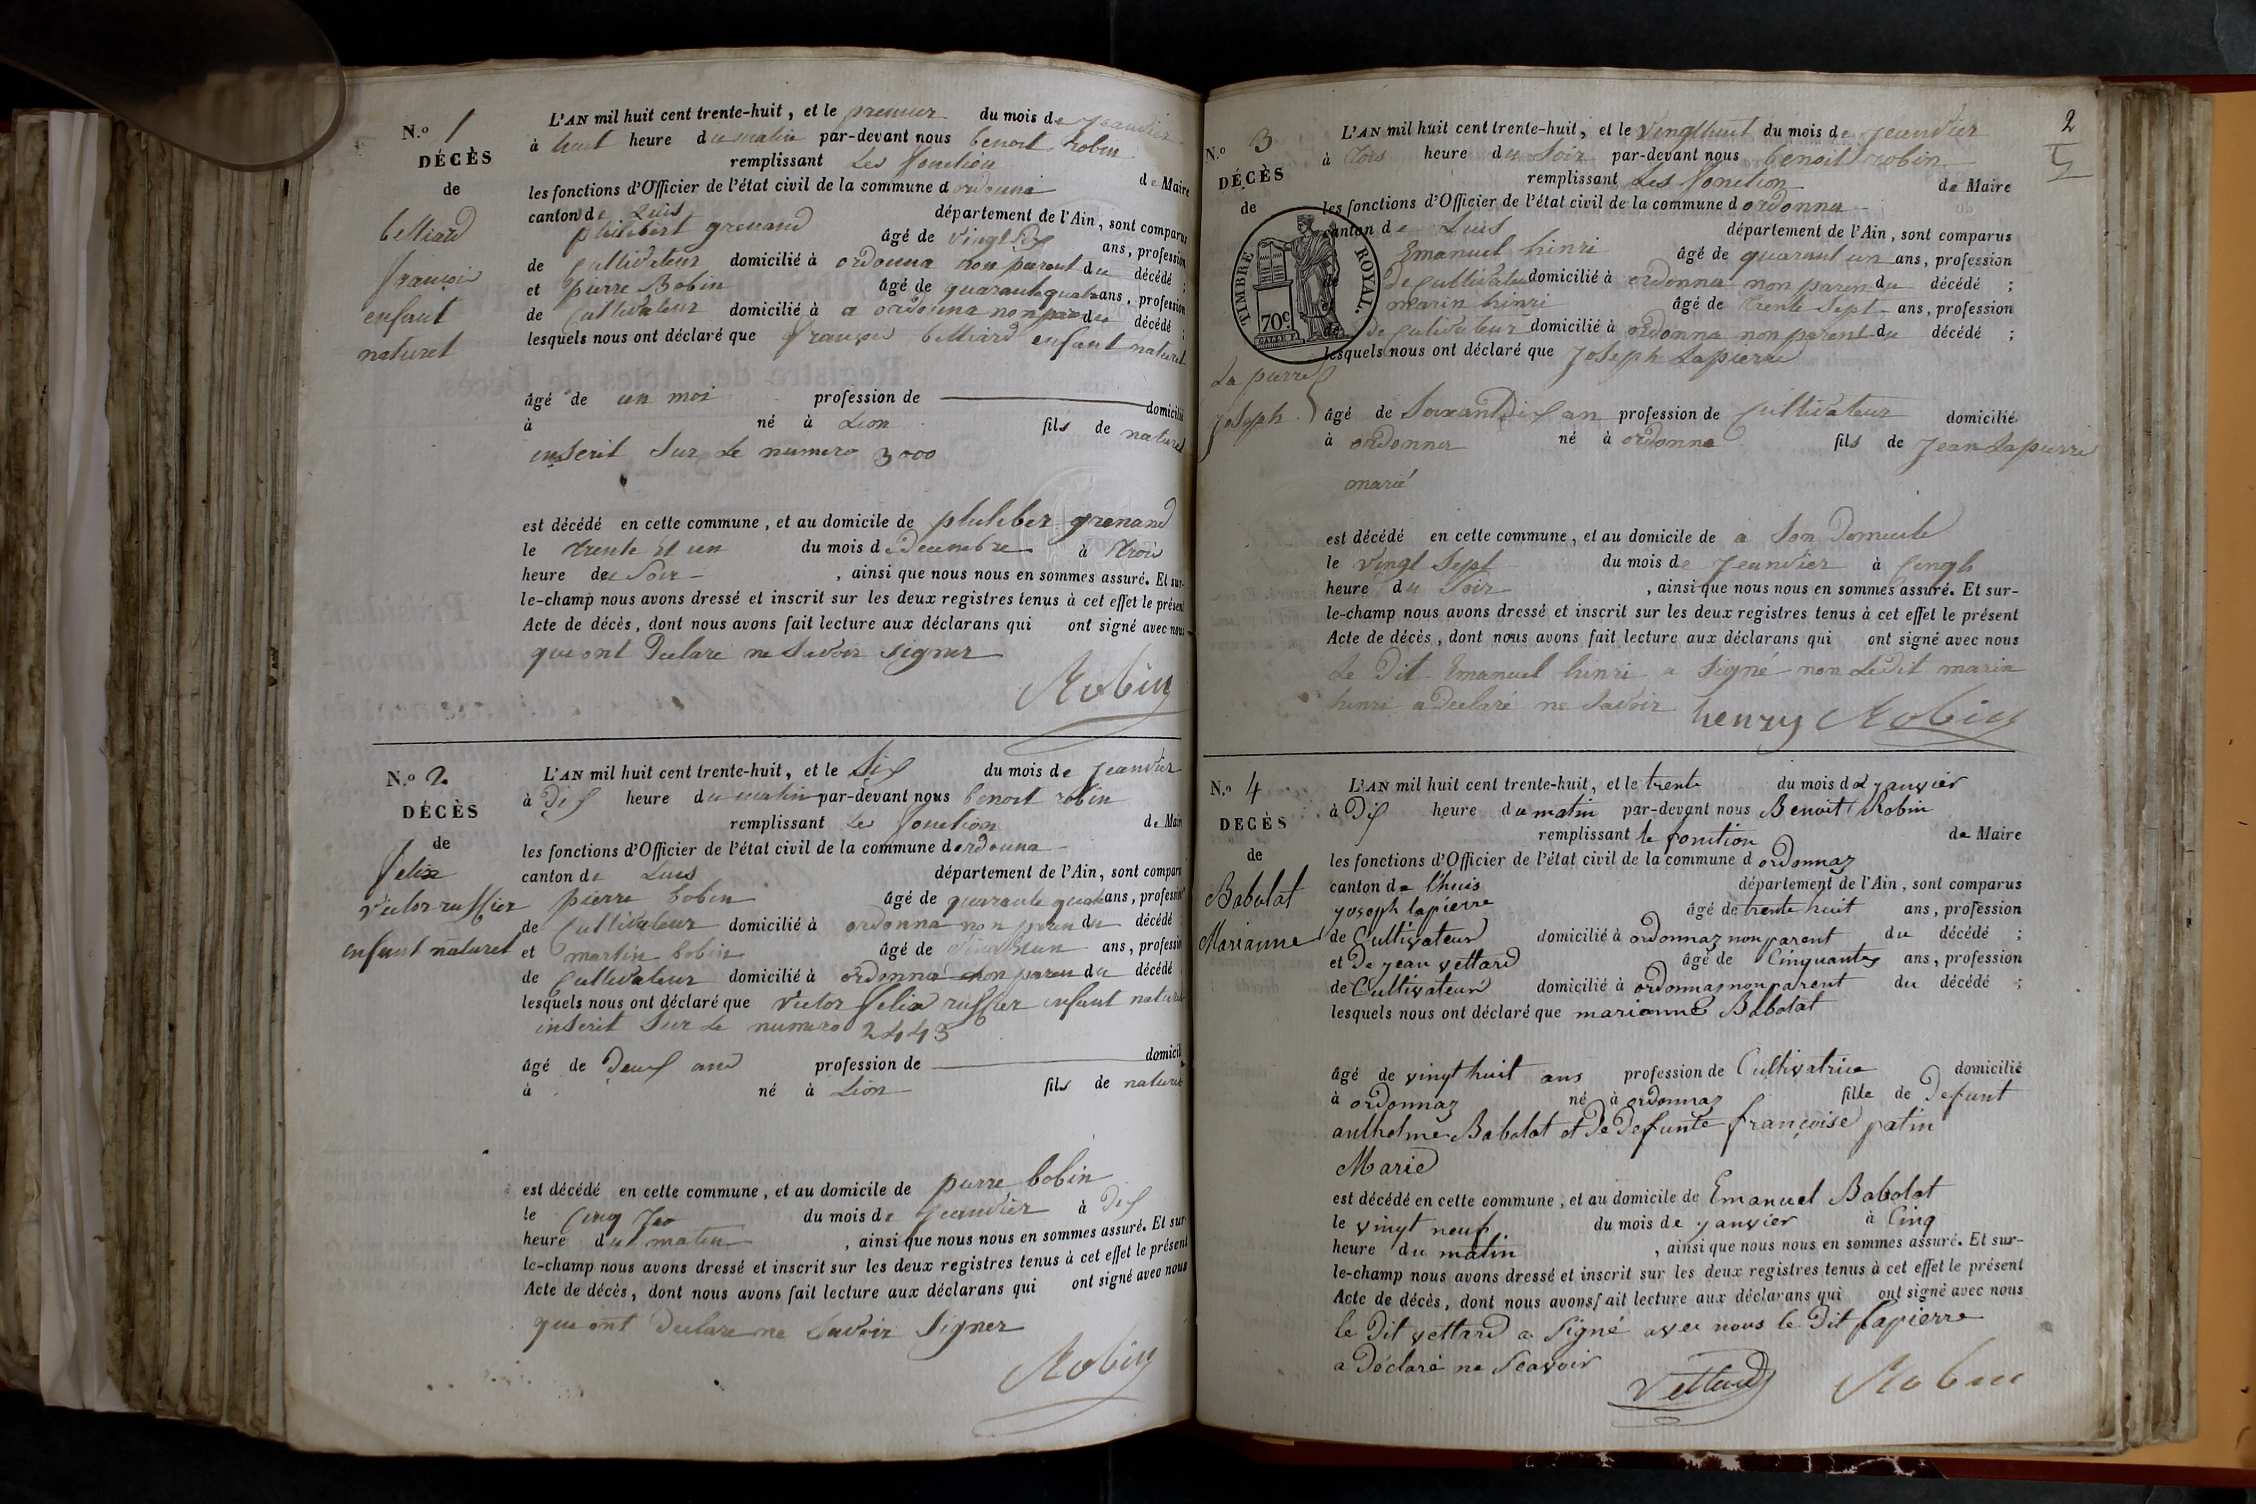 N.o 1
DÉCÈS
de
belliard
françois
enfant
naturel
L'AN mil huit cent trente-huit, et le premier du mois de Jeanvier
à huit heure du matin par-devant nous benoit robin
remplissant Les fonction de Maire
les fonctions d'Officier de l'état civil de la commune d ordonna
canton de Luis département de l'Ain, sont comparus
philibert grenand âgé de vingt six ans, profession
de Cultivateur domicilié à ordonna non parent du décédé ;
et pierre Bobin âgé de quarante quatre ans, profession
de Cultivateur domicilié à a ordonna non du décédé ;
lesquels nous ont déclaré que françois belliard enfant naturel
âgé de un moi profession de domicilié
à né à Lion fils de naturel
inscrit Sur Le numero 3000
est décédé en cette commune, et au domicile de philiber grenand
le trente et un du mois de Decembre à trois
heure du Soir, ainsi que nous nous en sommes assuré. Et sur-
le-champ nous avons dressé et inscrit sur les deux registres tenus à cet effet le présent
Acte de décès, dont nous avons fait lecture aux déclarans qui ont signé avec nous
qui ont Declaré ne Savoir Signer
Robin
N.o 2
DÉCÈS
de
felix
victor russier
enfant naturel
L'AN mil huit cent trente-huit, et le Six du mois de Jeanvier
à Dix heure du matin par-devant nous benoit robin
remplissant Les fonction de Maire
les fonctions d'Officier de l'état civil de la commune d ordonna
canton de Luis département de l'Ain, sont comparus
pierre bobin âgé de quarante quatre ans, profession
de Cultivateur domicilié à ordonna non paren du décédé
et martin bobin âgé de ans, profession
de Cultivateur domicilié à ordonna non paren du décédé
lesquels nous ont déclaré que victor felix russier enfant naturel
inscrit Sur Le numero 2443
âgé de Deux ans profession de domicilié
à né à Lion fils de naturel
est décédé en cette commune, et au domicile de pierre bobin
le Cinq du mois de Jeanvier à Dix
heure du matin, ainsi que nous nous en sommes assuré. Et sur-
le-champ nous avons dressé et inscrit sur les deux registres tenus à cet effet le présent
Acte de décès, dont nous avons fait lecture aux déclarans qui ont signé avec nous
qui ont Declare ne Savoir Signer
Robin
2
N.o 3
DÉCÈS
de
La pierre
Joseph
TIMBRE ROYAL.
70c
L'AN mil huit cent trente-huit, et le vingthuit du mois de Jeanvier
à trois heure du Soir par-devant nous benoit robin
remplissant Les fonction de Maire
les fonctions d'Officier de l'état civil de la commune d ordonna
canton de Luis département de l'Ain, sont comparus
Emanuel hinri âgé de quarant un ans, profession
de Cultivateur domicilié à ordonna non paren du décédé ;
marin hinri âgé de trente Sept ans, profession
de Cultivateur domicilié à ordonna non parent du décédé ;
lesquels nous ont déclaré que Joseph Lapierre
âgé de Soixant Dix an profession de Cultivateur domicilié
à ordonna né à ordonna fils de Jean Lapierre
marié
est décédé en cette commune, et au domicile de a Son Domicile
le vingt Sept du mois de Jeanvier à Cinqh
heure du Soir, ainsi que nous nous en sommes assuré. Et sur-
le-champ nous avons dressé et inscrit sur les deux registres tenus à cet effet le présent
Acte de décès, dont nous avons fait lecture aux déclarans qui ont signé avec nous
Le Dit Emanuel hinri a Signé non Ledit marin
hinri a Declaré ne Savoir henry Robin
N.o 4
DECÈS
de
Babolat
Marianne
L'AN mil huit cent trente-huit, et le trente du mois de yanvier
à Dix heure du matin par-devant nous Benoit Robin
remplissant le fonction de Maire
les fonctions d'Officier de l'état civil de la commune d ordonnaz
canton de l'huis département de l'Ain, sont comparus
yoseph lapierre âgé de trente huit ans, profession
de Cultivateur domicilié à ordonnaz non parent du décédé ;
et De yean vettard âgé de Cinquante ans, profession
de Cultivateur domicilié à ordonnaz non parent du décédé ;
lesquels nous ont déclaré que marianne Babolat
âgé de vingt huit ans profession de Cultivatrice domicilié
à ordonnaz né à ordonnaz fille de Defunt
anthelme Babolat et De Defunte françoise patin
Marie
est décédé en cette commune, et au domicile de Emanuel Babolat
le vingt neuf du mois de yanvier à Cinq
heure du matin, ainsi que nous nous en sommes assuré. Et sur-
le-champ nous avons dressé et inscrit sur les deux registres tenus à cet effet le présent
Acte de décès, dont nous avons fait lecture aux déclarans qui ont signé avec nous
le Dit vettard a Signé avec nous le Dit lapierre
a Déclaré ne Scavoir
Vettard Robin